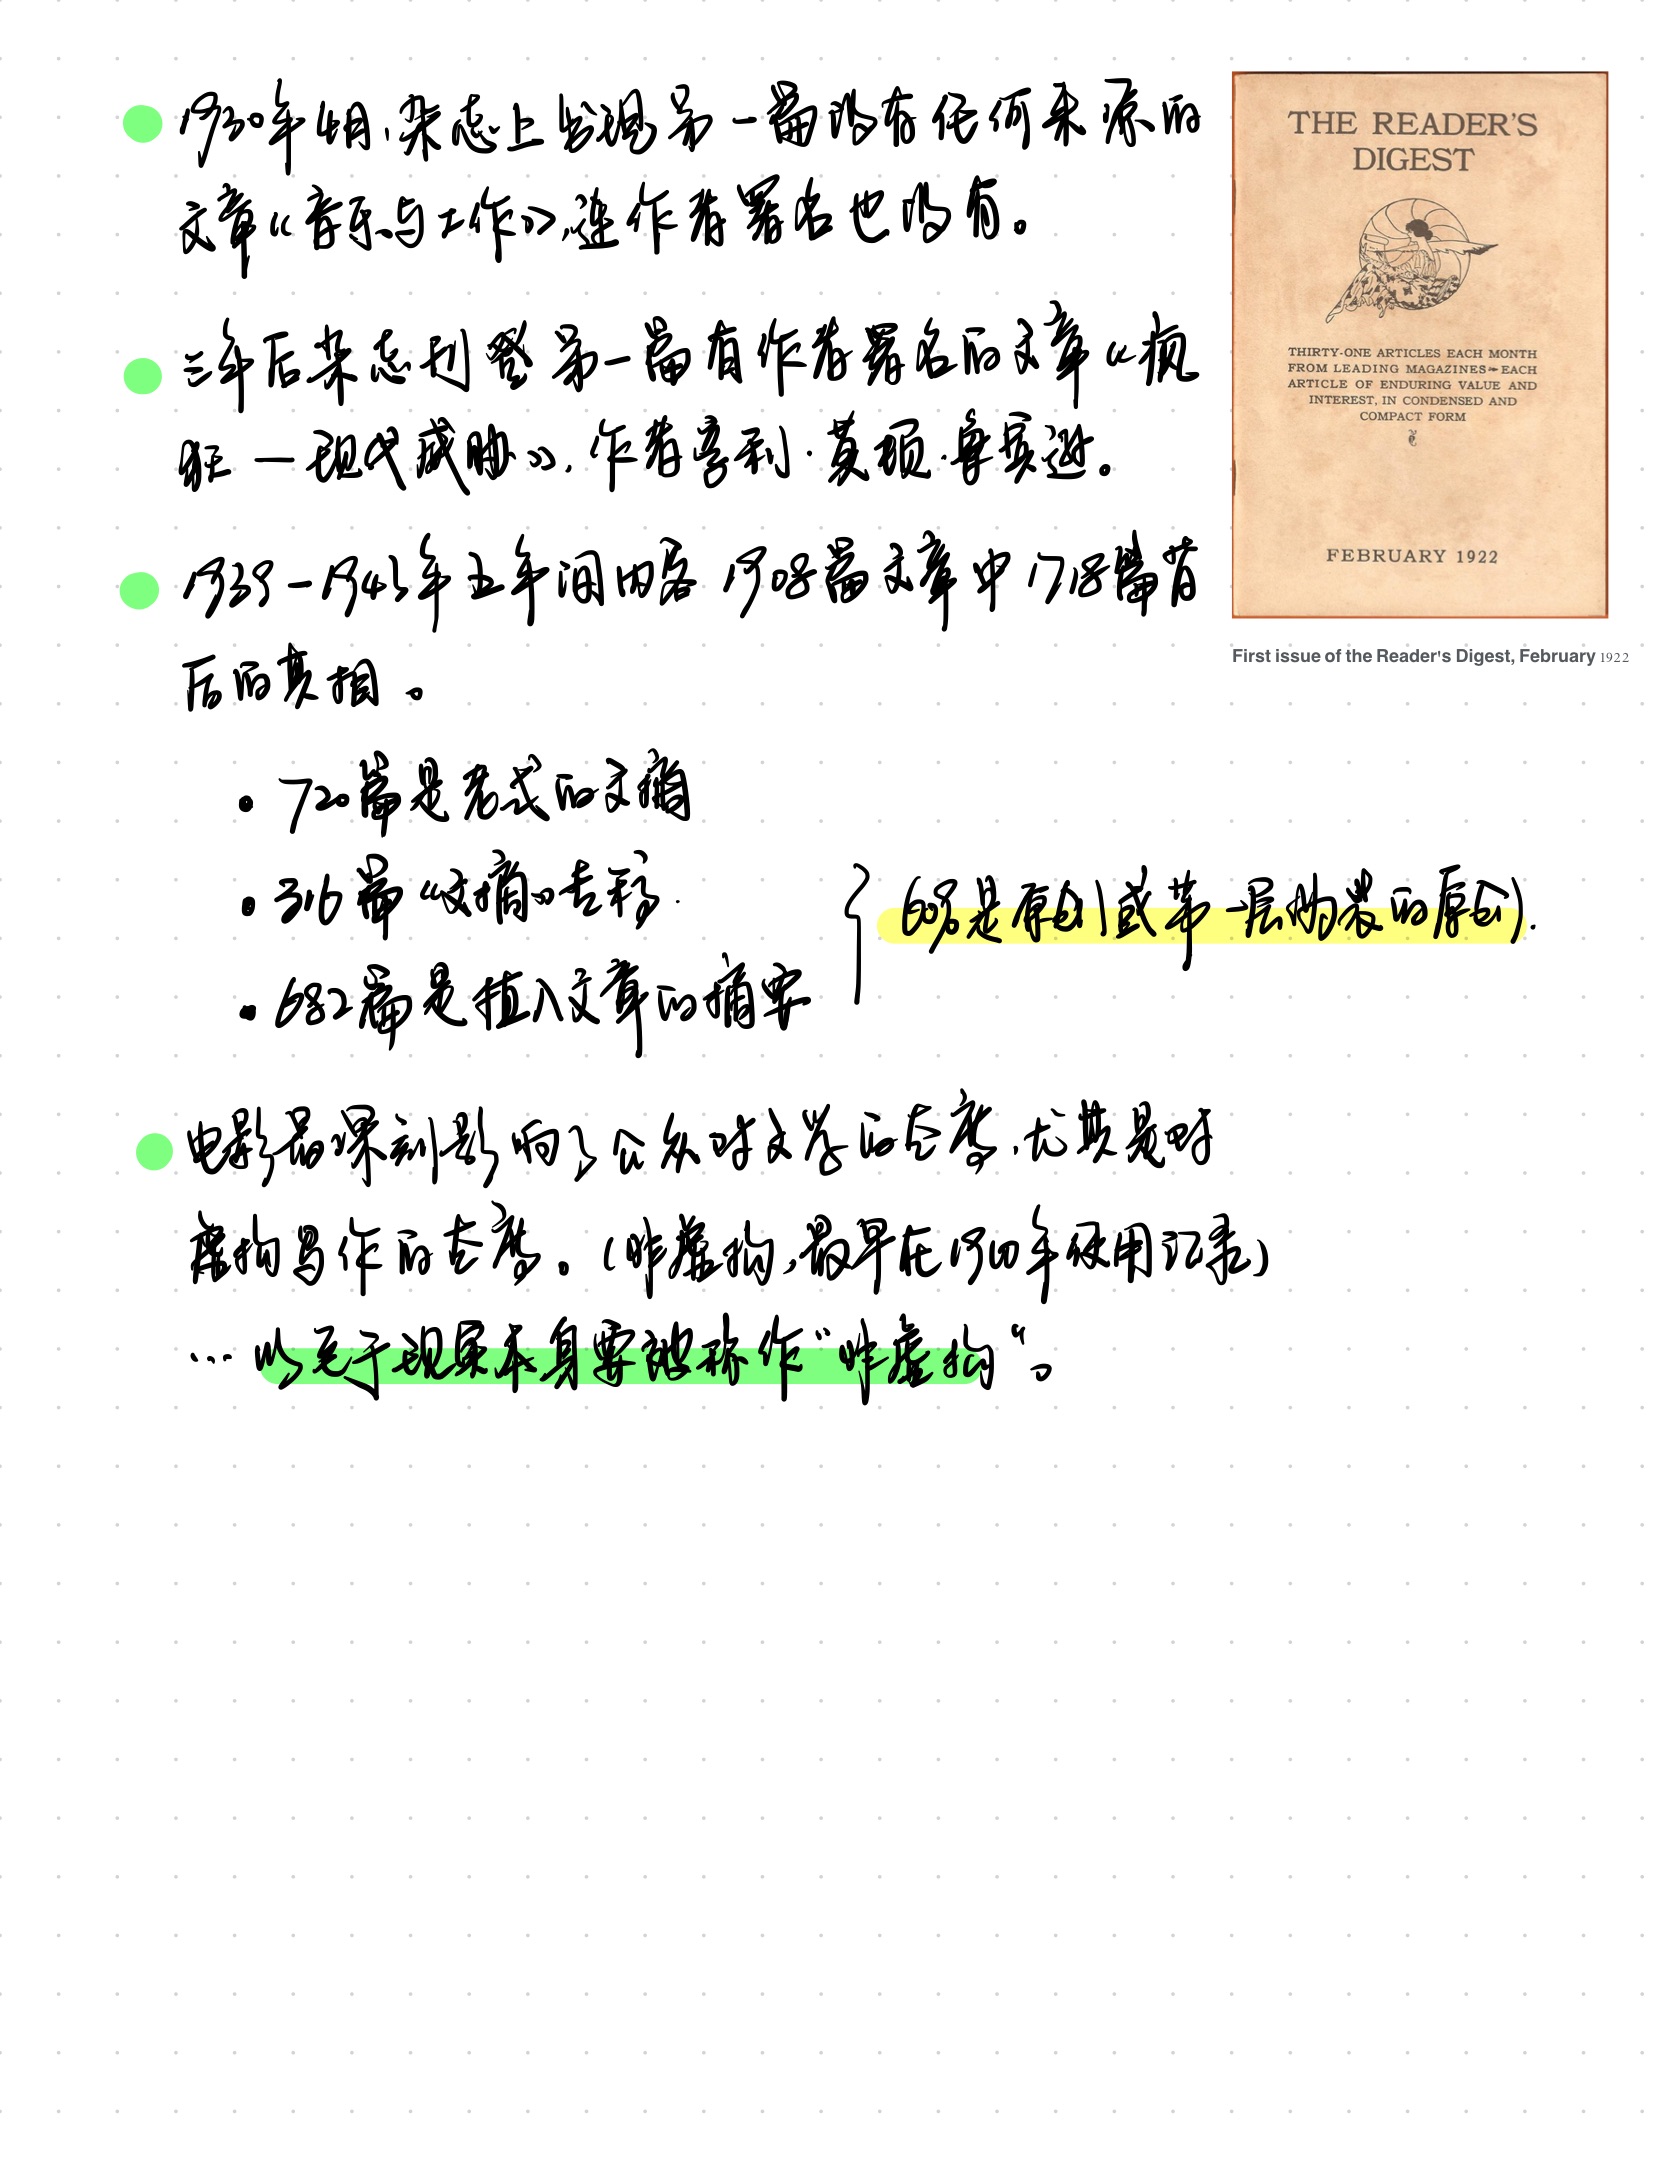 1930年4月,杂志上出现第一篇没有任何来源的
文章《音乐与工作》,连作者署名也没有。
三年后杂志刊登第一篇有作者署名的文章《疯
狂—现代威胁》,作者亨利·莫顿·鲁宾逊。
1939-1943年五年间内容1908篇文章中1718篇背
后的真相。
• 720篇是老式的文摘
• 316篇《文摘》专稿.
• 682篇是植入文章的摘要
60%是原创或第一层伪装的原创.
电影最深刻影响了公众对文学的态度,尤其是对
虚构写作的态度。(非虚构,最早在1900年使用记录)
…以至于现实本身要被称作“非虚构“。
THE READER'S
DIGEST
THIRTY-ONE ARTICLES EACH MONTH
FROM LEADING MAGAZINES EACH
ARTICLE OF ENDURING VALUE AND
INTEREST, IN CONDENSED AND
COMPACT FORM
FEBRUARY 1922
First issue of the Reader's Digest, February 1922